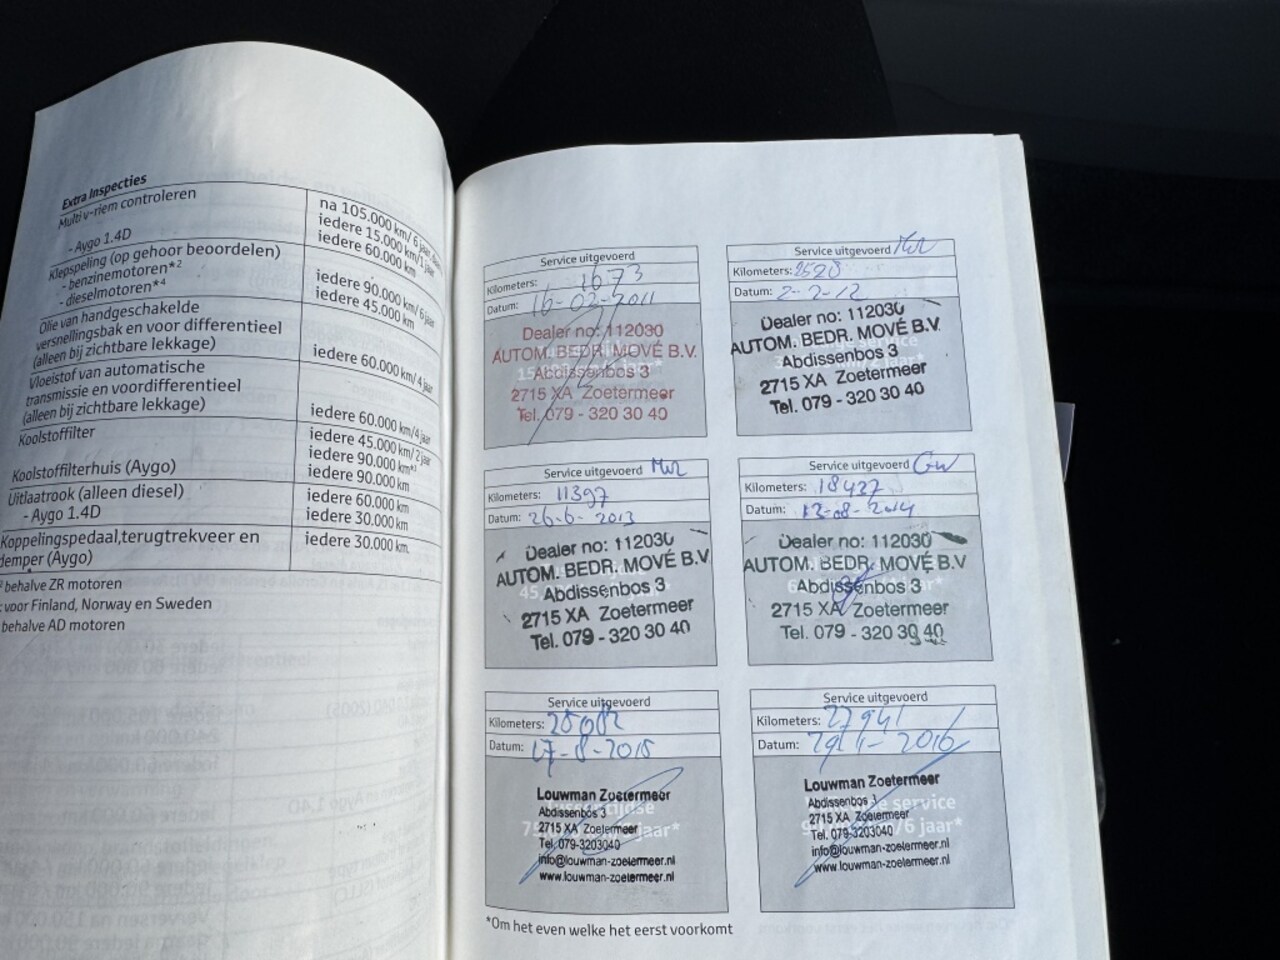 Extra Inspecties
Multi v-riem controleren
na 105.000 km/ 6 jaar
iedere 15.000 km/1 jaar
- Aygo 1.4D
iedere 60.000 km
Klepspeling (op gehoor beoordelen)
- benzinemotoren*2
iedere 90.000 km/ 6 jaar
- dieselmotoren*4
iedere 45.000 km
Olie van handgeschakelde
versnellingsbak en voor differentieel
(alleen bij zichtbare lekkage)
iedere 60.000 km/ 4 jaar
Vloeistof van automatische
transmissie en voordifferentieel
(alleen bij zichtbare lekkage)
iedere 60.000 km/4 jaar
Koolstoffilter
iedere 45.000 km/ 2 jaar
iedere 90.000 km*3
Koolstoffilterhuis (Aygo)
iedere 90.000 km
Uitlaatrook (alleen diesel)
iedere 60.000 km
- Aygo 1.4D
iedere 30.000 km
Koppelingspedaal,terugtrekveer en
demper (Aygo)
iedere 30.000 km.
behalve ZR motoren
: voor Finland, Norway en Sweden
behalve AD motoren
Service uitgevoerd
Kilometers: 1673
Datum: 16-02-2011
Dealer no: 112030
AUTOM. BEDR. MOVÉ B.V.
Abdissenbos 3
2715 XA Zoetermeer
Tel. 079 - 320 30 40
Service uitgevoerd
Kilometers:
Datum: 2-2-12
Dealer no: 112030
AUTOM. BEDR. MOVÉ B.V.
Abdissenbos 3
2715 XA Zoetermeer
Tel. 079 - 320 30 40
Service uitgevoerd
Kilometers: 11397
Datum: 26-6-2013
Dealer no: 112030
AUTOM. BEDR. MOVÉ B.V.
Abdissenbos 3
2715 XA Zoetermeer
Tel. 079 - 320 30 40
Service uitgevoerd
Kilometers: 18427
Datum: 12-08-2014
Dealer no: 112030
AUTOM. BEDR. MOVÉ B.V.
Abdissenbos 3
2715 XA Zoetermeer
Tel. 079 - 320 30 40
Service uitgevoerd
Kilometers:
Datum: 17-8-2015
Louwman Zoetermeer
Abdissenbos 3
2715 XA Zoetermeer
Tel. 079-3203040
info@louwman-zoetermeer.nl
www.louwman-zoetermeer.nl
Service uitgevoerd
Kilometers: 27941
Datum:
Louwman Zoetermeer
Abdissenbos 3
2715 XA Zoetermeer
Tel. 079-3203040
info@louwman-zoetermeer.nl
www.louwman-zoetermeer.nl
*Om het even welke het eerst voorkomt